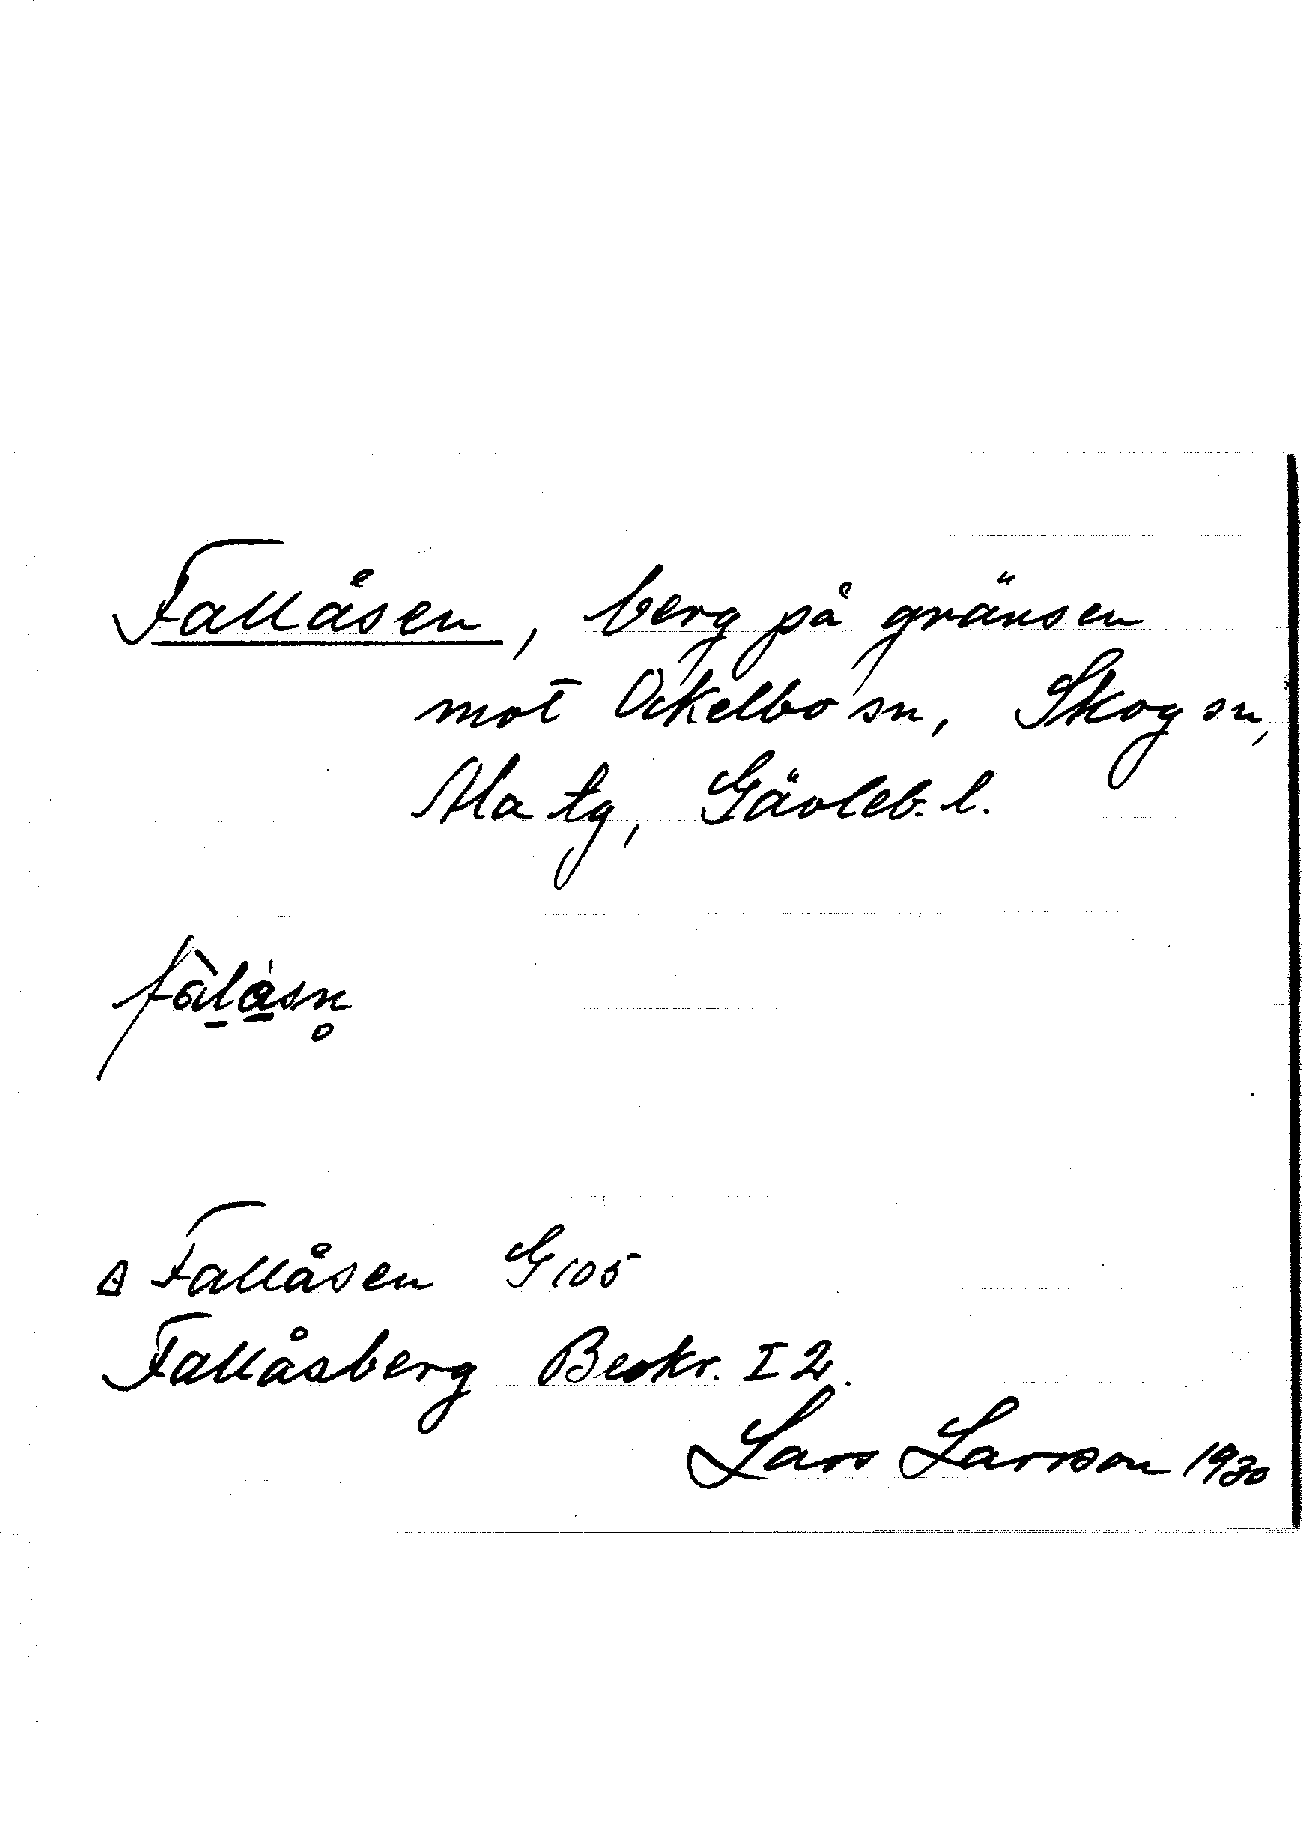 Fallåsen, berg på gränsen
mot Ockelbo sn, Skog sn,
Ala tg, Gävleb. l.
Fallåsen G 105
Fallåsberg Beskr. I 2.
Lars Larsson 1930